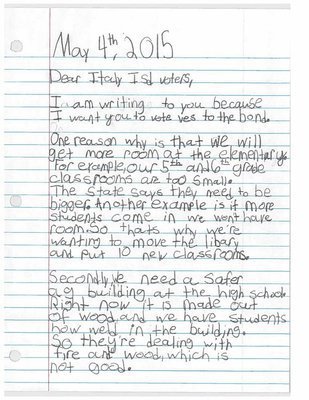 May 4th, 2015
Dear Itady Isd voters,
I am writing to you because
I want you to vote yes to the bond.
One reason why is that we will
get more room at the elementary.
For example, our 5th and 6th grade
classrooms are too small.
The state says they need to be
bigger. Another example is if more
students come in we wont have
room. So thats why we're
wanting to move the libary
and put 10 new classrooms.
Secondly, we need a safer
ag building at the high school.
Right now it is made out
of wood, and we have students
how weld in the building.
So they're dealing with
fire and wood, which is
not good.